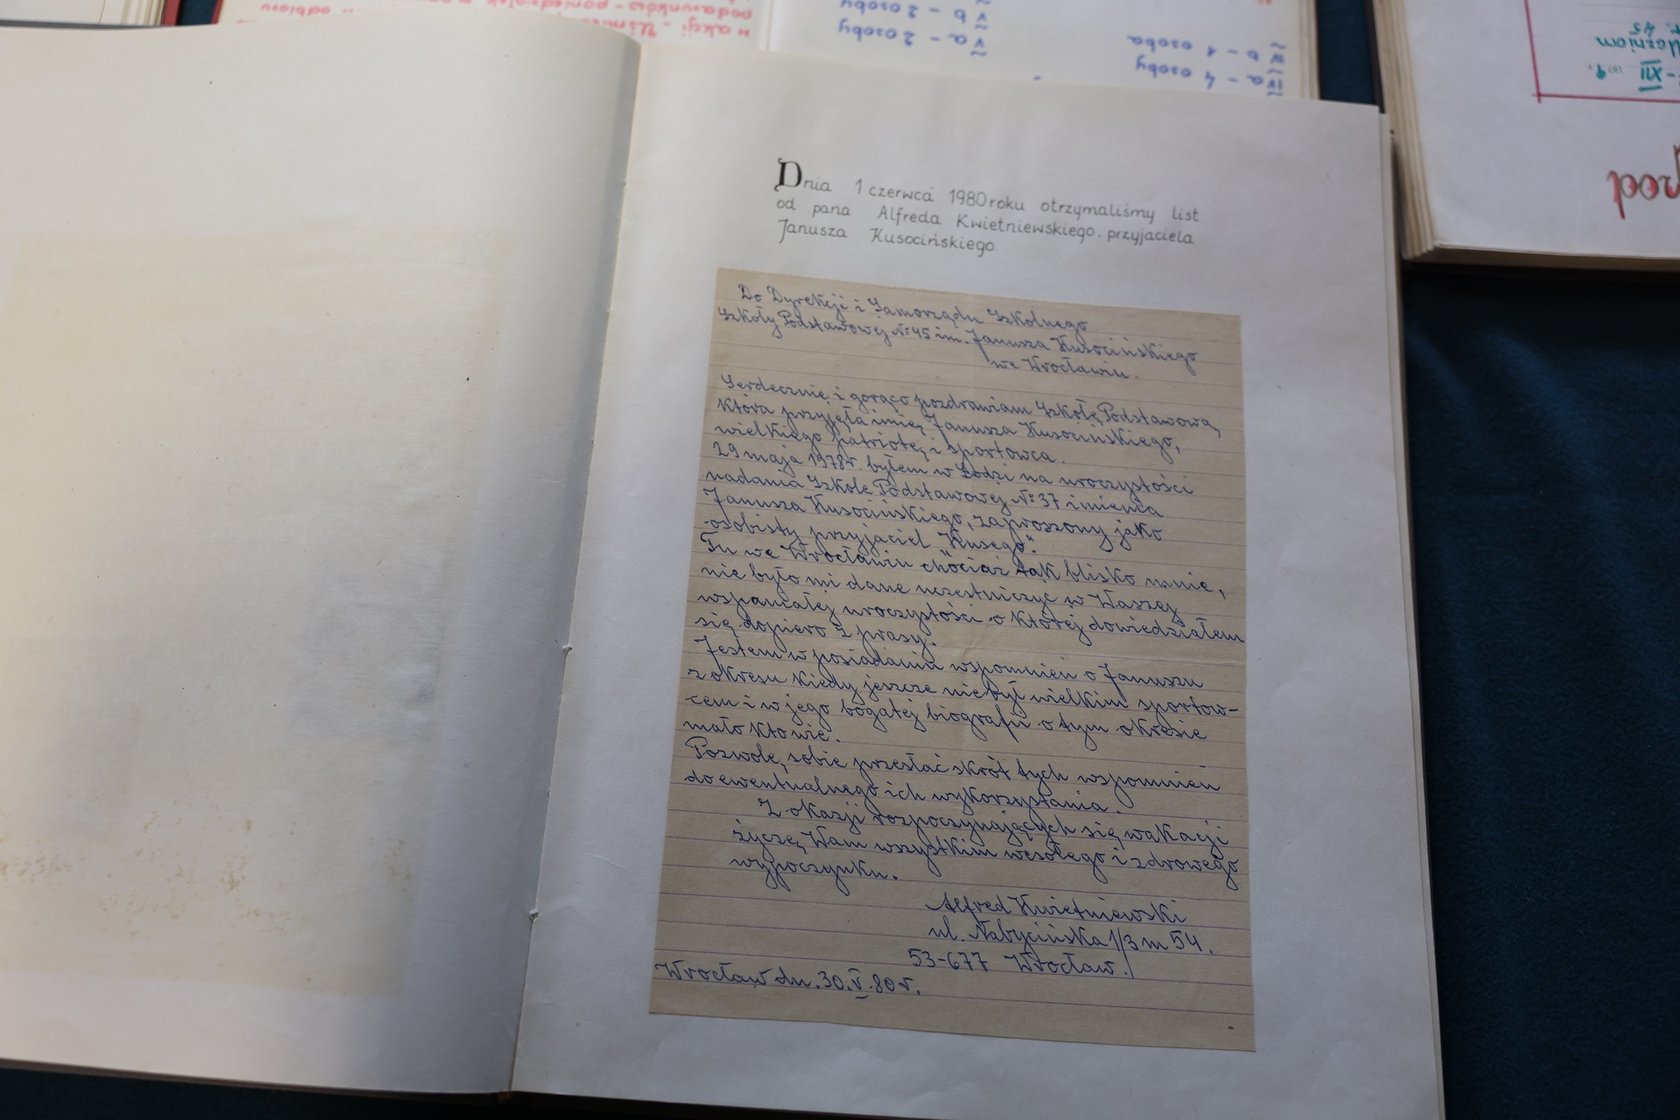 Dnia 1 czerwca 1980 roku otrzymaliśmy list
od pana Alfreda Kwietniewskiego, przyjaciela
Janusza Kusocińskiego
Do Dyrekcji i Samorządu Szkolnego
Szkoły Podstawowej Nr 45 im. Janusza Kusocińskiego
we Wrocławiu.
Serdecznie i gorąco pozdrawiam Szkołę Podstawową,
która przyjęła imię Janusza Kusocińskiego,
wielkiego patriotę i sportowca.
29 maja 1978 r. byłem w Łodzi na uroczystości
nadania Szkole Podstawowej Nr 37 imienia
Janusza Kusocińskiego, zaproszony jako
osobisty przyjaciel "Kusego".
Tu we Wrocławiu chociaż tak blisko mnie,
nie było mi dane uczestniczyć w Waszej
wspaniałej uroczystości o której dowiedziałem
się dopiero z prasy.
Jestem w posiadaniu wspomnień o Januszu
z okresu kiedy jeszcze nie był wielkim sportow-
cem i w jego bogatej biografii o tym okresie
mało kto wie.
Pozwolę sobie przesłać skrót tych wspomnień
do ewentualnego ich wykorzystania.
Z okazji rozpoczynających się wakacji
życzę Wam wszystkim wesołego i zdrowego
wypoczynku.
Alfred Kwietniewski
ul. 1/3 m 54.
53-677 Wrocław.
Wrocław dn. 30.V.80 r.
IV a - 4 osoby
IV b - 1 osoba
V a - 2 osoby
V b - 2 osoby
w akcji
odbioru
XII
Uczniom
45